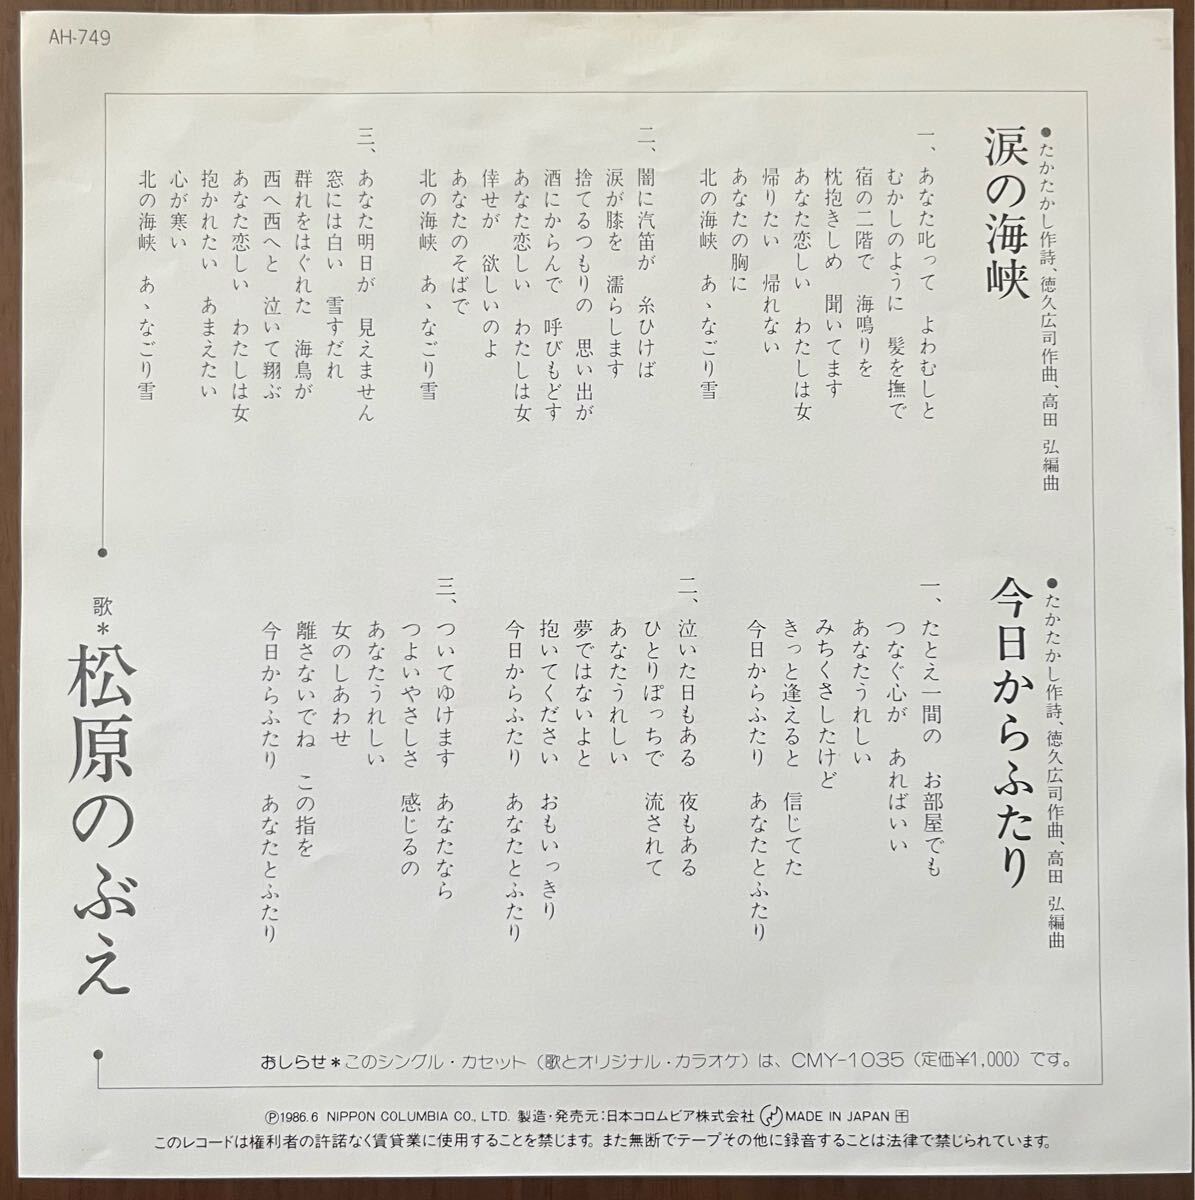 AH-749
●たかたかし作詩、徳久広司作曲、高田 弘編曲
涙の海峡
一、あなた叱って よわむしと
むかしのように 髪を撫で
宿の二階で 海鳴りを
枕抱きしめ 聞いてます
あなた恋しい わたしは女
帰りたい 帰れない
あなたの胸に
北の海峡 あゝなごり雪
二、闇に汽笛が 糸ひけば
涙が膝を 濡らします
捨てるつもりの 思い出が
酒にからんで 呼びもどす
あなた恋しい わたしは女
倖せが 欲しいのよ
あなたのそばで
北の海峡 あゝなごり雪
三、あなた明日が 見えません
窓には白い 雪すだれ
群れをはぐれた 海鳥が
西へ西へと 泣いて翔ぶ
あなた恋しい わたしは女
抱かれたい あまえたい
心が寒い
北の海峡 あゝなごり雪
●たかたかし作詩、徳久広司作曲、高田 弘編曲
今日からふたり
一、たとえ一間の お部屋でも
つなぐ心が あればいい
あなたうれしい
みちくさしたけど
きっと逢えると 信じてた
今日からふたり あなたとふたり
二、泣いた日もある 夜もある
ひとりぽっちで 流されて
あなたうれしい
夢ではないよと
抱いてください おもいっきり
今日からふたり あなたとふたり
三、ついてゆけます あなたなら
つよいやさしさ 感じるの
あなたうれしい
女のしあわせ
離さないでね この指を
今日からふたり あなたとふたり
歌*松原のぶえ
おしらせ*このシングル・カセット（歌とオリジナル・カラオケ）は、CMY-1035（定価¥1,000）です。
Ⓟ1986.6 NIPPON COLUMBIA CO., LTD. 製造・発売元:日本コロムビア株式会社 MADE IN JAPAN
このレコードは権利者の許諾なく賃貸業に使用することを禁じます。また無断でテープその他に録音することは法律で禁じられています。